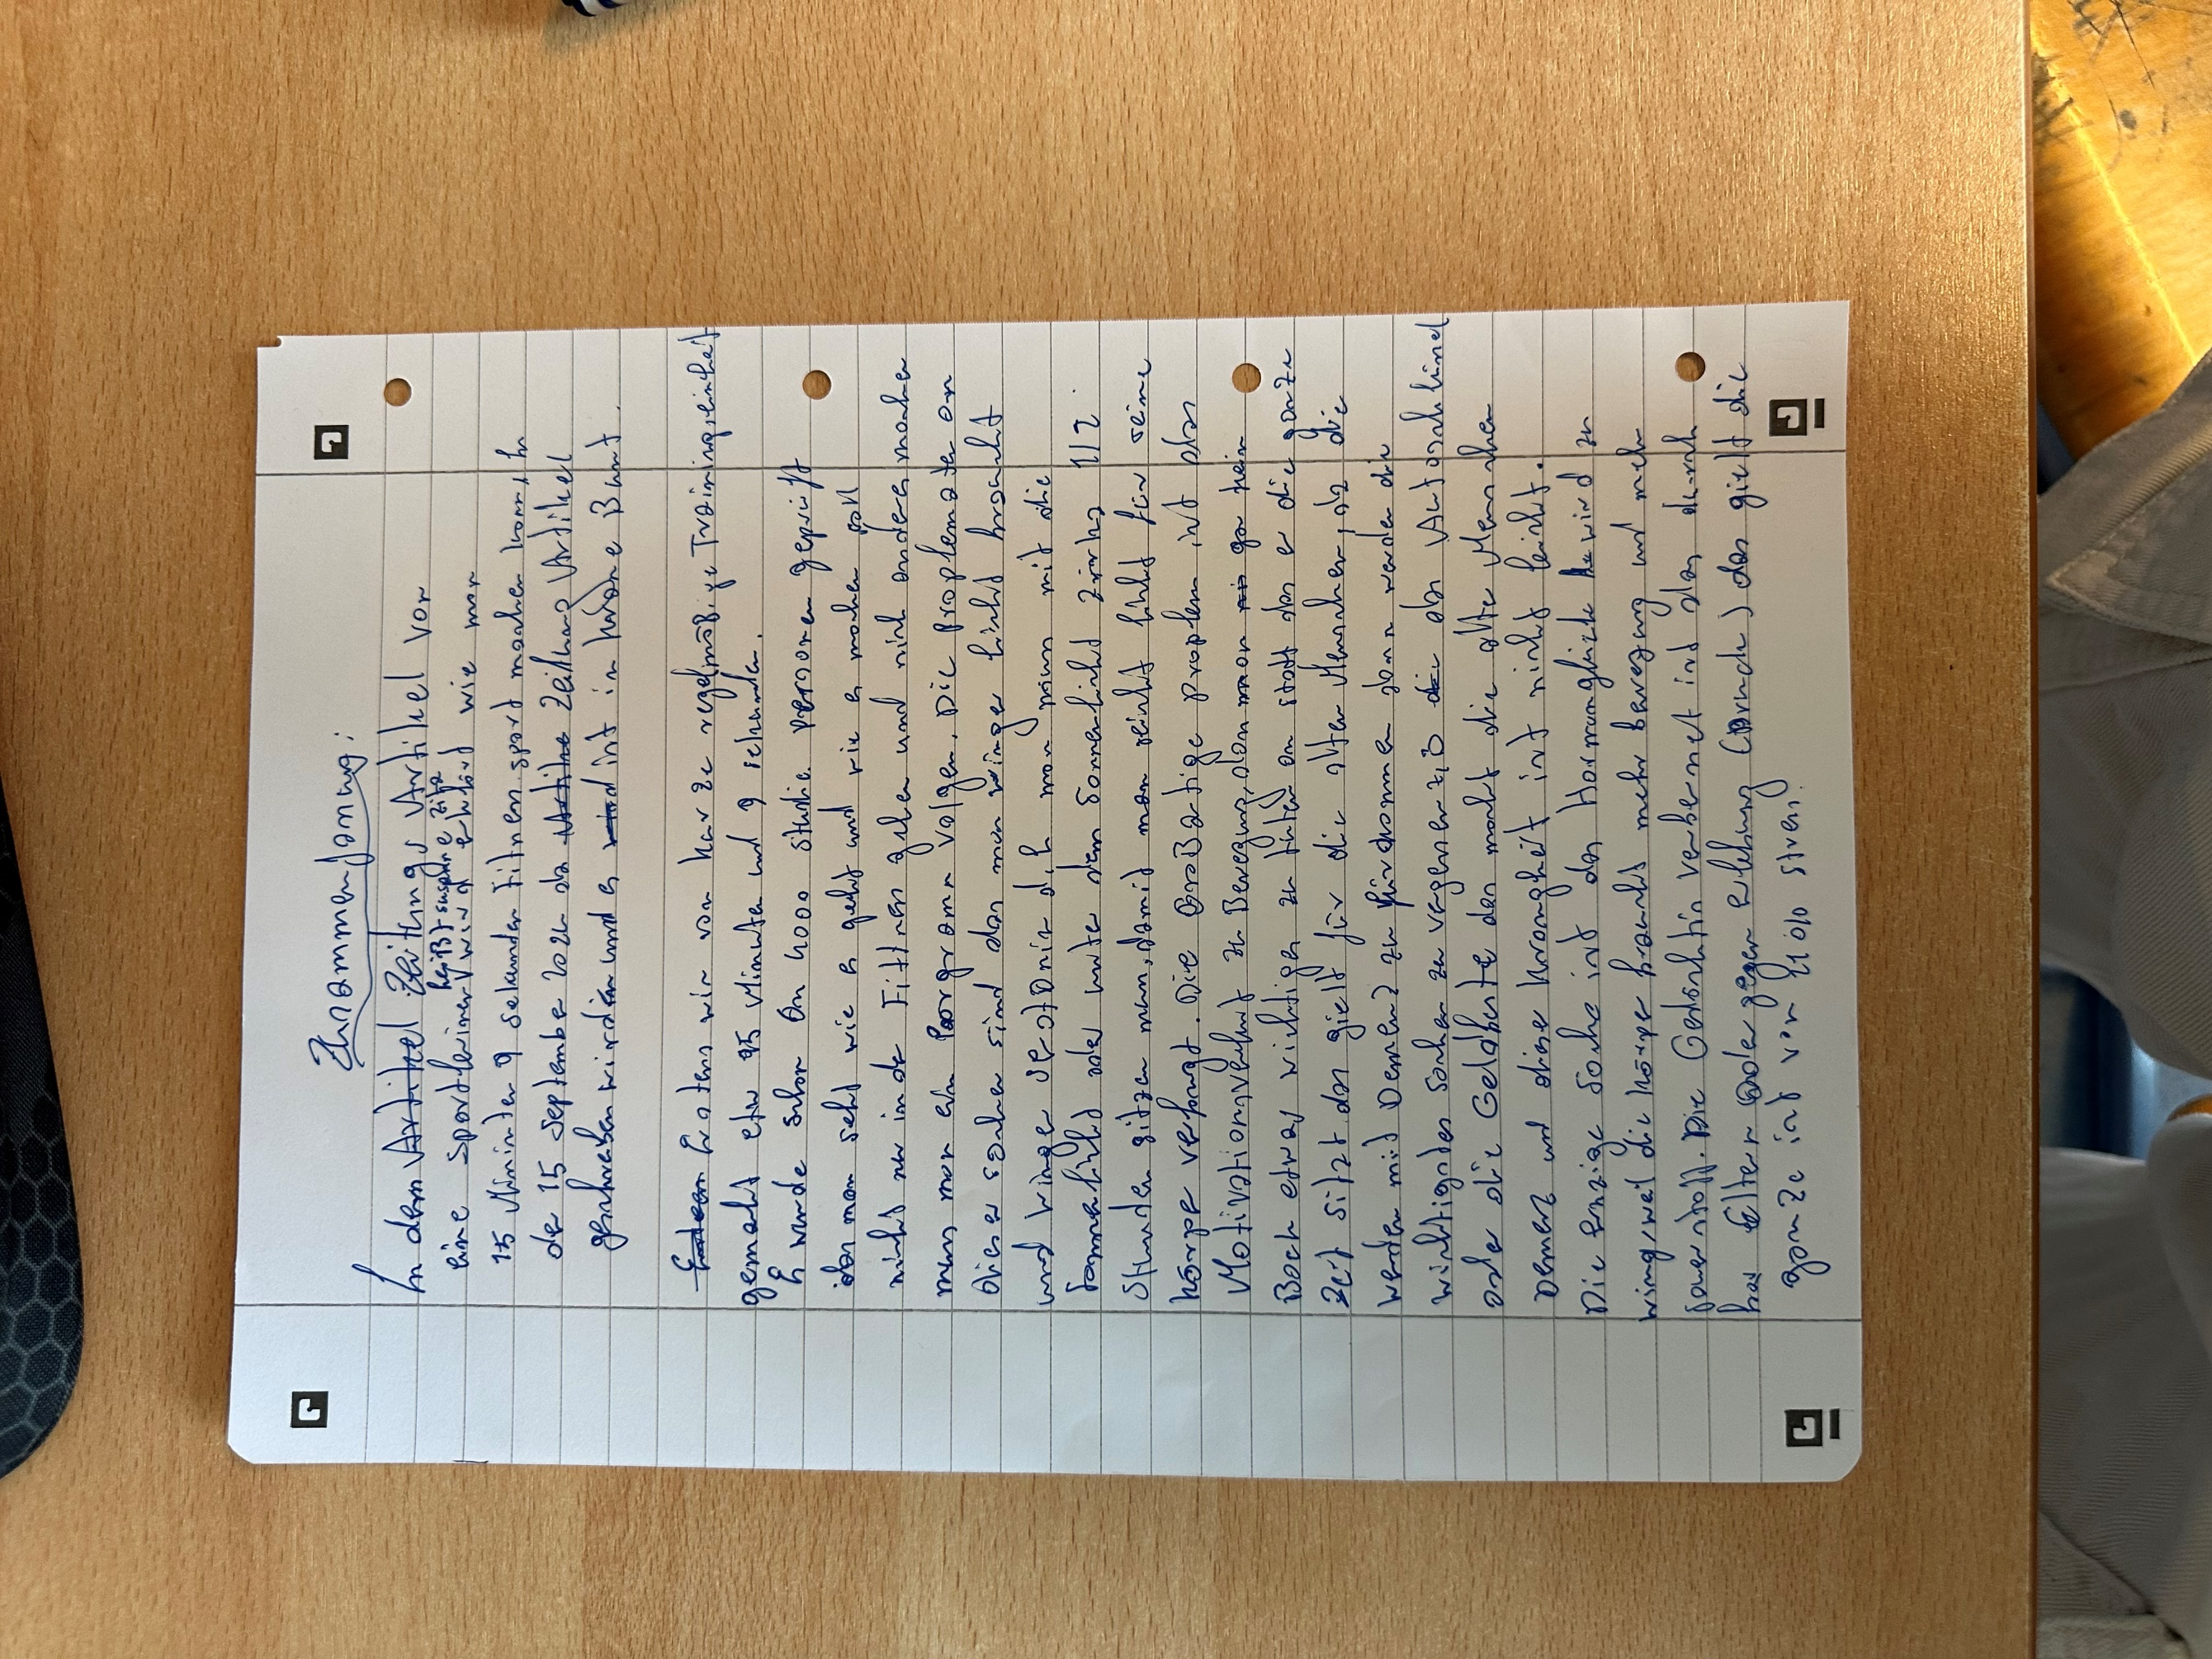 Zusammenfassung:
In dem Artikel Zeitungs Artikel von
eine Sportleiner wird erklärt wie man
heißt susanne
15 Minuten 9 sekunden Fitness sport machen kann, in
der 15 September 2024 der Artike Zeitung Artikel
geschrieben wirden und es wird ist in
Erstens wir von kar ze regelmäßige Trainingseinheit
gemacht etw 95 Minuten und 9 sekunden.
Es wurde schon An 4000 studie personen geprüft
das man seht wie es geht und wie es machen soll
nicht nur in der Fittnes gehen und nich anderes machen
muss man ein Porgramm volgen. Die Proplemate an
dieser sachen sind das man winge licht braucht
und winge d.h man muss mit die
Sonnenlicht oder unter dem Sonnenlicht zirka 1/2
Stunden sitzen muss, damit man seicht licht für seine
körpe verfougt. Die Großartige proplem ist das
Motivationsverlust zu Bewegung, dan man nis ga kein
Bock etwas wichtiges zu finden an statt das er die ganze
Zeit sitzt das gielt für die alten Menschen, da die
werden mit Demenz zu fürkommen dann werden die
wichtigsten Sachen zu vegenen z.B die das Autoschlüssel
oder die Geldberte das macht die alte Menschen
Demenz und diese Krangheit ist nicht leicht.
Die enzige Sache ist das Hormonglück ke wird zu
wing, weil die Körpe braucht mehr bewegung und mehr
sauerstoff. Die Gedächtin verbernet ist das durch
has Eltern oder gegen erlebung (Druck) das gielt die
ganze ist von 21 Ob stres.